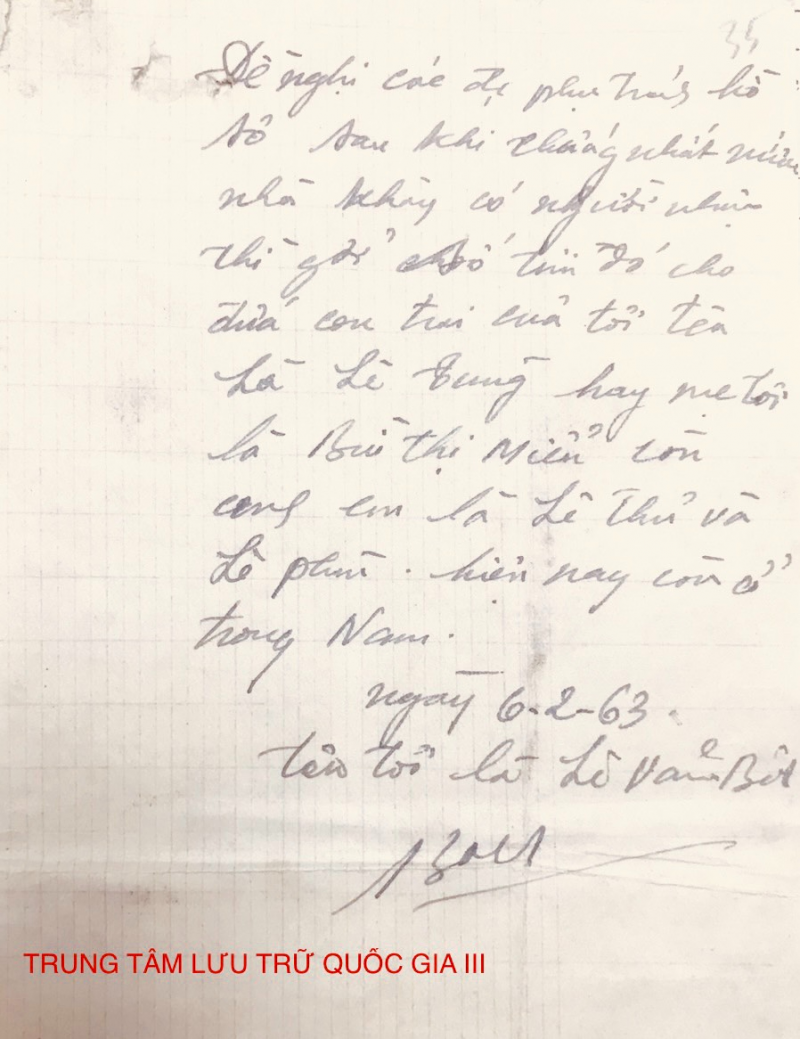 35
Đề nghị các đ/c phụ trách hồ
sơ sau khi thống nhất nước
nhà không có người nhận
thì gởi số tiền đó cho
đứa con trai của tôi tên
Là Lê Hùng hay mẹ tôi
là Bùi thị Miễn còn
em là Lê Thử và
Lê phùn. hiện nay còn ở
trong Nam.
ngày 6-2-63.
tên tôi là Lê Văn Bôt
TRUNG TÂM LƯU TRỮ QUỐC GIA III